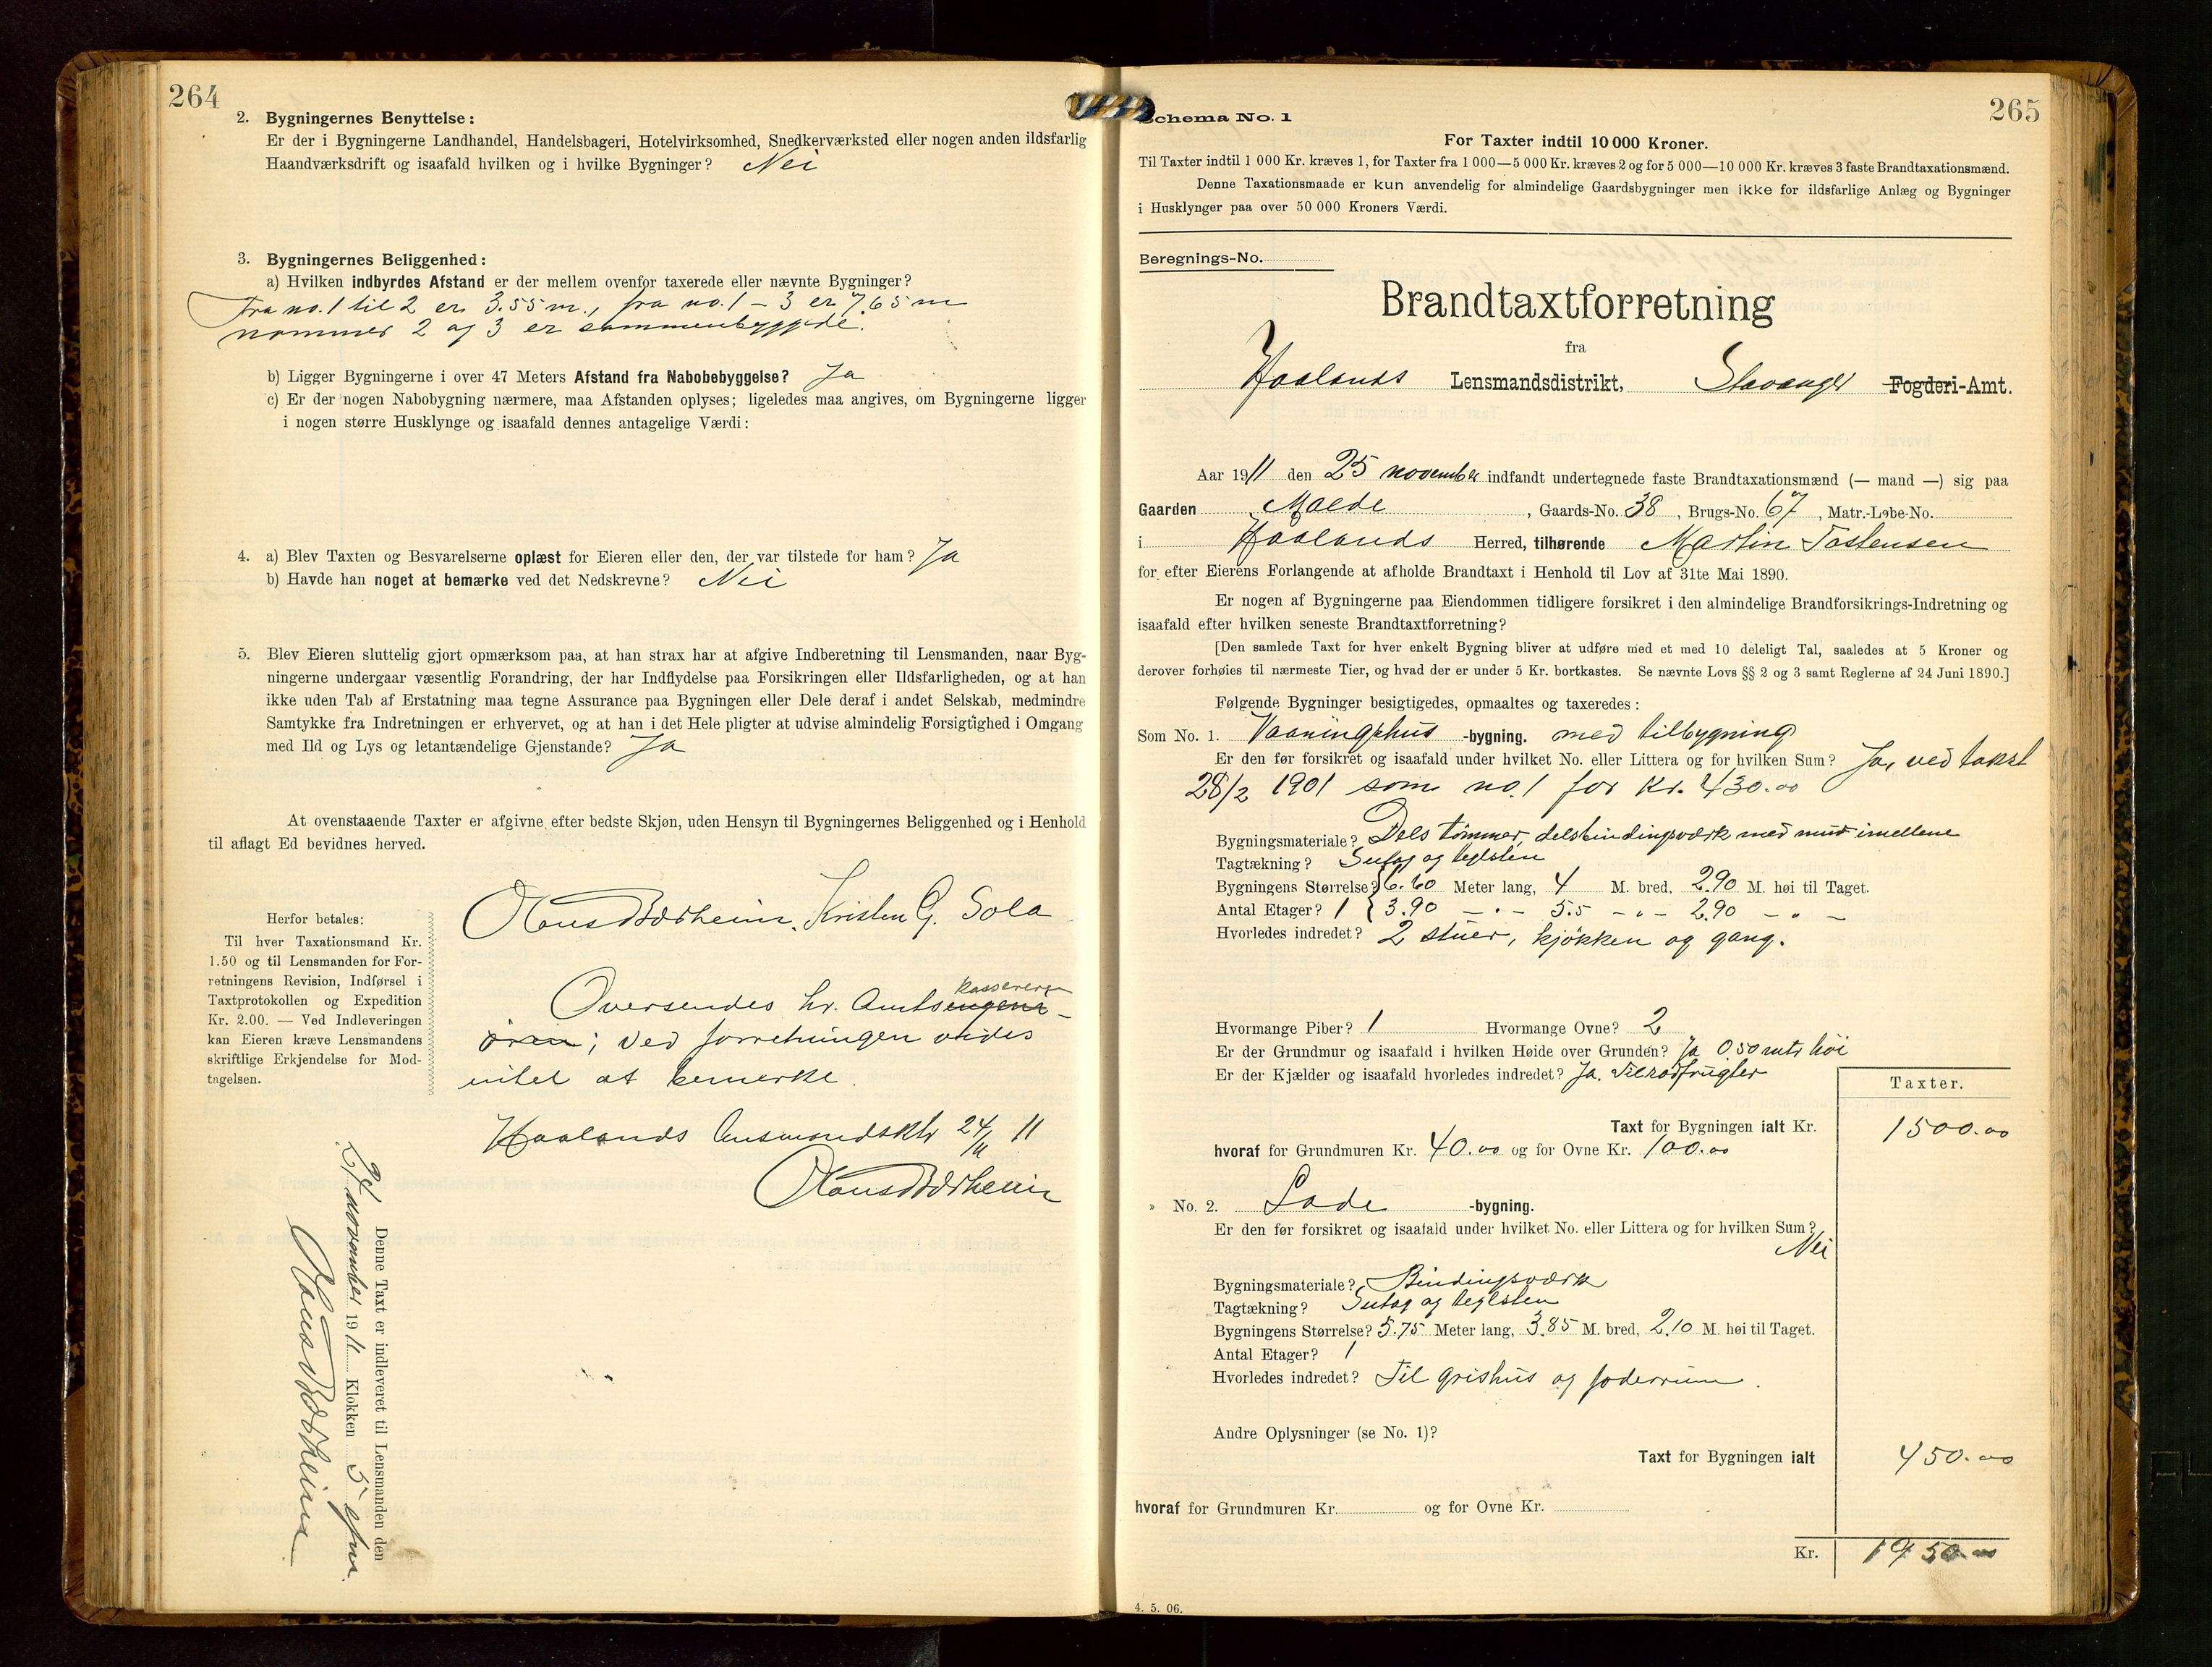 264
2. Bygningernes Benyttelse:
Er der i Bygningerne Landhandel, Handelsbageri, Hotelvirksomhed, Snedkerværksted eller nogen anden ildsfarlig
Haandværksdrift og isaafald hvilken og i hvilke Bygninger? Nei
3. Bygningernes Beliggenhed:
a) Hvilken indbyrdes Afstand er der mellem ovenfor taxerede eller nævnte Bygninger?
Fra no. 1 til 2 er 3.55 m., fra no. 1 – 3 er 7.65 m
nommer 2 og 3 er sammenbyggede.
b) Ligger Bygningerne i over 47 Meters Afstand fra Nabobebyggelse? Ja
c) Er der nogen Nabobygning nærmere, maa Afstanden oplyses; ligeledes maa angives, om Bygningerne ligger
i nogen større Husklynge og isaafald dennes antagelige Værdi:
4. a) Blev Taxten og Besvarelserne oplæst for Eieren eller den, der var tilstede for ham? Ja
b) Havde han noget at bemærke ved det Nedskrevne? Nei
5. Blev Eieren sluttelig gjort opmærksom paa, at han strax har at afgive Indberetning til Lensmanden, naar Byg-
ningerne undergaar væsentlig Forandring, der har Indflydelse paa Forsikringen eller Ildsfarligheden, og at han
ikke uden Tab af Erstatning maa tegne Assurance paa Bygningen eller Dele deraf i andet Selskab, medmindre
Samtykke fra Indretningen er erhvervet, og at han i det Hele pligter at udvise almindelig Forsigtighed i Omgang
med Ild og Lys og letantændelige Gjenstande? Ja
At ovenstaaende Taxter er afgivne efter bedste Skjøn, uden Hensyn til Bygningernes Beliggenhed og i Henhold
til aflagt Ed bevidnes herved.
Hans Bærheim. Kristen G. Sola
Herfor betales:
Til hver Taxationsmand Kr.
1.50 og til Lensmanden for For-
retningens Revision, Indførsel i
Taxtprotokollen og Expedition
Kr. 2.00. — Ved Indleveringen
kan Eieren kræve Lensmandens
skriftlige Erkjendelse for Mod-
tagelsen.
kassereren
Oversendes hr. Amtsingeni-
ören; ved forretningen vides
intet at bemerke.
Haalands lensmandsktr 24/11 11
Hans Bærheim
Denne Taxt er indleveret til Lensmanden den
24 november 1911 Klokken 5 efm.
Hans Bærheim
265
Schema No. 1
For Taxter indtil 10 000 Kroner.
Til Taxter indtil 1 000 Kr. kræves 1, for Taxter fra 1 000—5 000 Kr. kræves 2 og for 5 000—10 000 Kr. kræves 3 faste Brandtaxationsmænd.
Denne Taxationsmaade er kun anvendelig for almindelige Gaardsbygninger men ikke for ildsfarlige Anlæg og Bygninger
i Husklynger paa over 50 000 Kroners Værdi.
Beregnings-No.
Brandtaxtforretning
fra
Haalands Lensmandsdistrikt, Stavanger Fogderi-Amt.
Aar 1911 den 25 november indfandt undertegnede faste Brandtaxationsmænd (— mand —) sig paa
Gaarden Malde, Gaards-No. 38, Brugs-No. 67, Matr.-Løbe-No.
i Haalands Herred, tilhørende Martin Tostensen
for efter Eierens Forlangende at afholde Brandtaxt i Henhold til Lov af 31te Mai 1890.
Er nogen af Bygningerne paa Eiendommen tidligere forsikret i den almindelige Brandforsikrings-Indretning og
isaafald efter hvilken seneste Brandtaxtforretning?
[Den samlede Taxt for hver enkelt Bygning bliver at udføre med et med 10 deleligt Tal, saaledes at 5 Kroner og
derover forhøies til nærmeste Tier, og hvad der er under 5 Kr. bortkastes. Se nævnte Lovs §§ 2 og 3 samt Reglerne af 24 Juni 1890.]
Følgende Bygninger besigtigedes, opmaaltes og taxeredes:
Som No. 1. Vaaningshus -bygning. med tilbygning
Er den før forsikret og isaafald under hvilket No. eller Littera og for hvilken Sum? Ja, ved takst
28/2 1901 som no. 1 for Kr. 430.00
Bygningsmateriale? Dels tömmer, dels bindingsværk med mur imellem
Tagtækning? Sutag og teglsten
Bygningens Størrelse? 6.60 Meter lang, 4 M. bred, 2.90 M. høi til Taget.
Antal Etager? 1 { 3.90 – " – 5.5 – " – 2.90 – " –
Hvorledes indredet? 2 stuer, kjökken og gang.
Hvormange Piber? 1 Hvormange Ovne? 2
Er der Grundmur og isaafald i hvilken Høide over Grunden? Ja 0,50 mtr höi
Er der Kjælder og isaafald hvorledes indredet? Ja. til rodfrugter
Taxter.
Taxt for Bygningen ialt Kr. 1500.00
hvoraf for Grundmuren Kr. 40.00 og for Ovne Kr. 100.00
» No. 2. Lade -bygning.
Er den før forsikret og isaafald under hvilket No. eller Littera og for hvilken Sum?
Nei
Bygningsmateriale? Bindingsværk
Tagtækning? Sutag og teglsten
Bygningens Størrelse? 5.75 Meter lang, 3.85 M. bred, 2.10 M. høi til Taget.
Antal Etager? 1
Hvorledes indredet? Til grishus og foderrum.
Andre Oplysninger (se No. 1)?
Taxt for Bygningen ialt 450.00
hvoraf for Grundmuren Kr. og for Ovne Kr.
Kr. 1950.00
4. 5. 06.